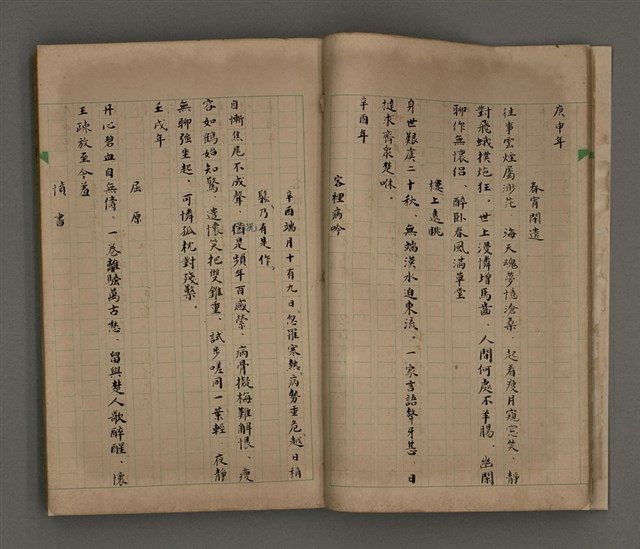 庚申年
春宵閒遣
往事雲煙屬渺茫、海天魂夢憶滄桑、起看瘦月窺窓笑、靜
對飛蛾撲炧狂、世上漫憐增馬齒、人間何處不羊腸、幽閑
聊作無懷侶、醉臥春風滿草堂
樓上遠眺
身世艱虞二十秋、無端淡水迫東流、一家言語聱牙甚、日
撻求齊衆楚咻、
辛酉年
客裡病吟
辛酉端月十有九日忽罹寒熱病勢重危越日稍
鬆乃有是作
自慚焦尾不成聲、猶是頻年百感縈、病骨擬梅難解恨、瘦
容如鶴始知驚、遣懷笑把雙錐重、試步嗟同一葉輕、夜靜
無聊強坐起、可憐孤枕對殘檠、
壬戌年
屈原
丹心碧血自無儔、一卷離騷萬古愁、留與楚人歌醉醒、懷
王疎放至今羞
憤書